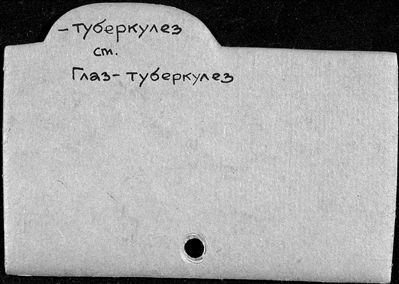 – туберкулез
ст.
Глаз- туберкулез